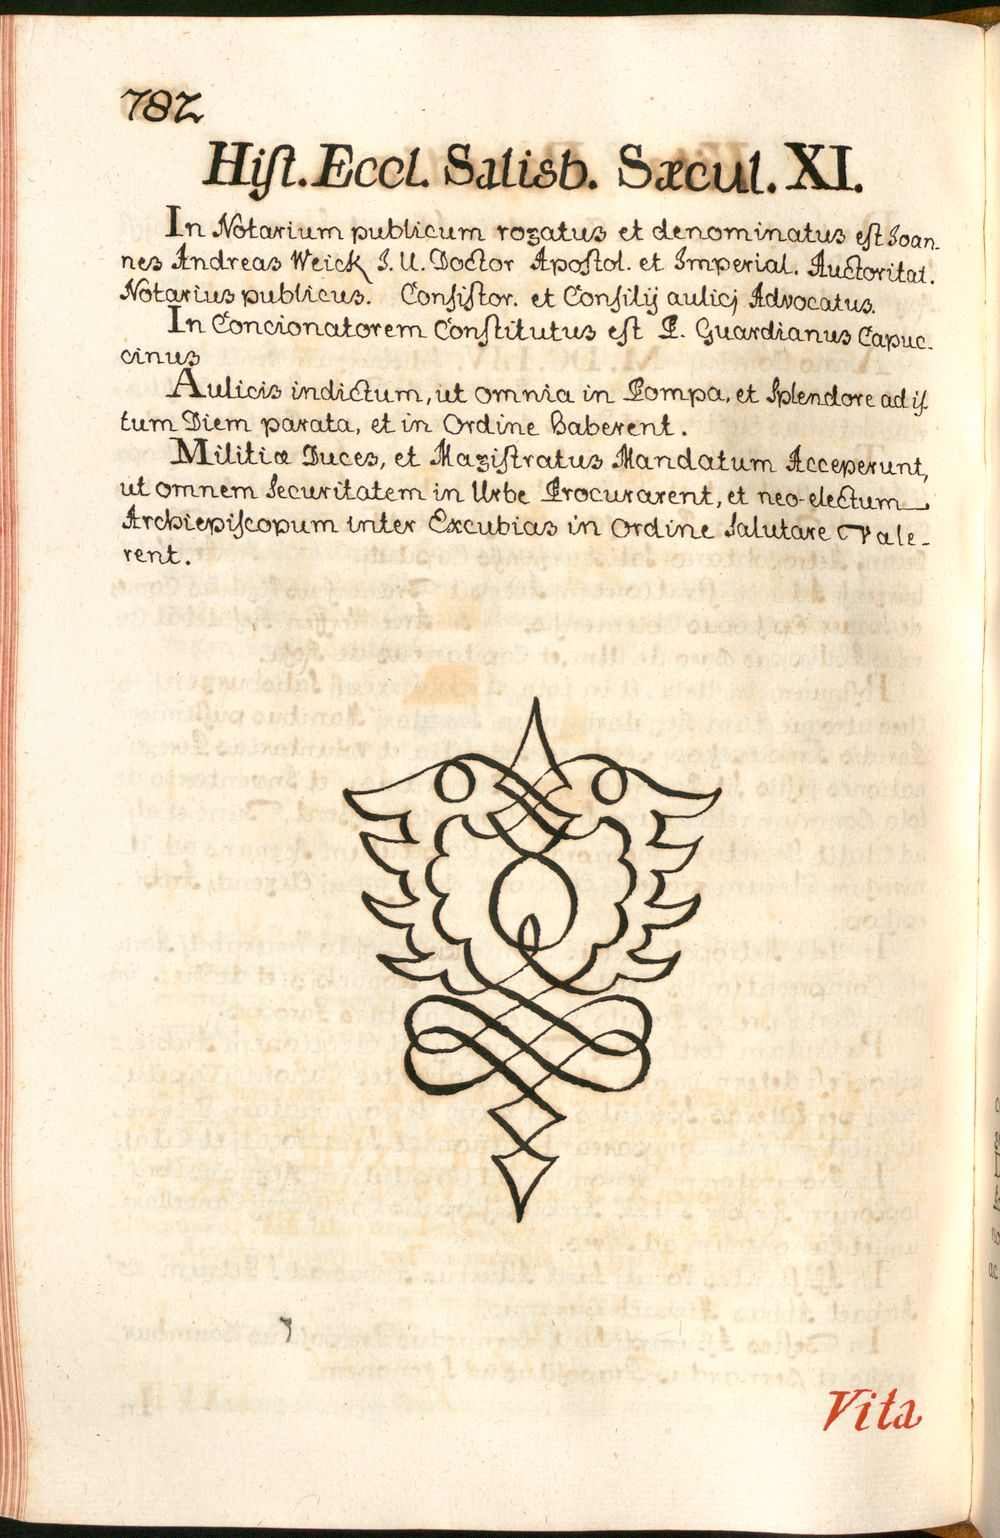 782
Hiſt. Eccl. Salisb. Sæcul. XI.
In Notarium publicum rogatus et denominatus eſt Joan-
nes Andreas Weick J. U. Doctor Apoſtol. et Imperial. Auctoritat.
Notarius publicus. Conſiſtor. et Conſilij aulicj Advocatus.
In Concionatorem Conſtitutus eſt P. Guardianus Capuc-
cinus
Aulicis indictum, ut omnia in Pompa, et Splendore ad iſ-
tum Diem parata, et in Ordine haberent.
Militiæ Duces, et Magiſtratus Mandatum Acceperunt,
ut omnem Securitatem in Urbe Procurarent, et neo-electum
Archiepiſcopum inter Excubias in Ordine Salutare Vale-
rent.
Vita